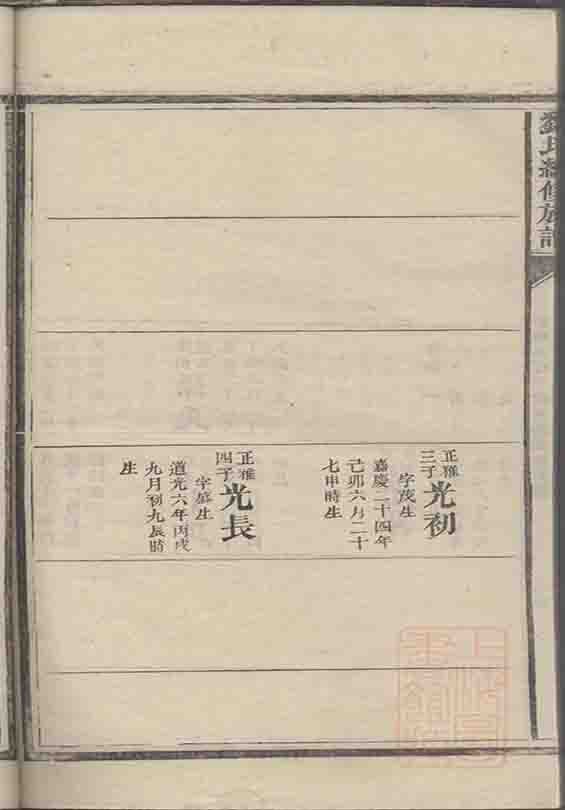 氏續修族譜
正雅
三子
光初
字茂生
嘉慶二十四年
己卯六月二十
七申時生
正雅
四子
光長
字盛生
道光六年丙戌
九月初九辰時
生